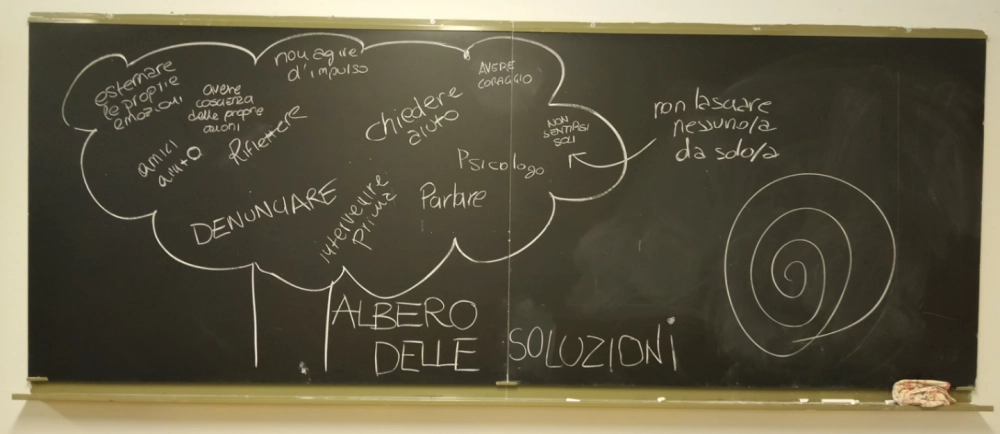 esternare
le proprie
emozioni
avere
coscienza
delle proprie
azioni
non agire
d'impulso
AVERE
CORAGGIO
amici
aiuto
Riflettere
chiedere
aiuto
NON
SENTIRSI
SOLI
non lasciare
nessuno/a
da solo/a
Psicologo
DENUNCIARE
intervenire
prima
Parlare
ALBERO
DELLE SOLUZIONI